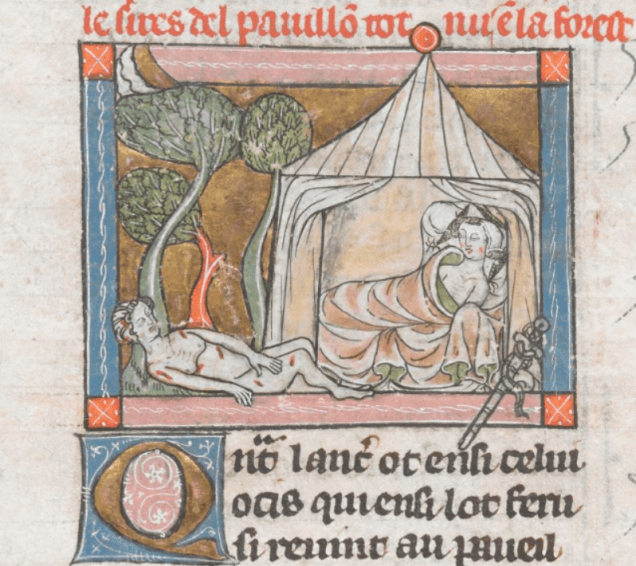 le sires del pauillõ tot nu ẽ la forest
Qñt lanc̉ ot ensi celui
ocis qui ensi lot feru
si reuint au paueil